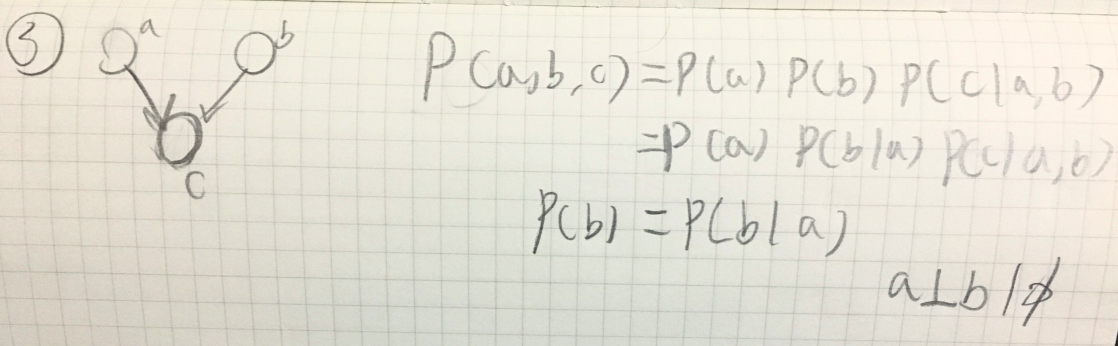 ③ a b P(a,b,c)=P(a) P(b) P(c|a,b)
=P(a) P(b|a) P(c|a,b)
c
P(b) = P(b|a)
a⊥b|ϕ